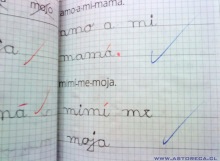 mojo
amo-a-mi-mamá.
amo a mi
mamá.
mi-mi-me-moja.
mimí me
moja
WWW.ASTORECA.CL